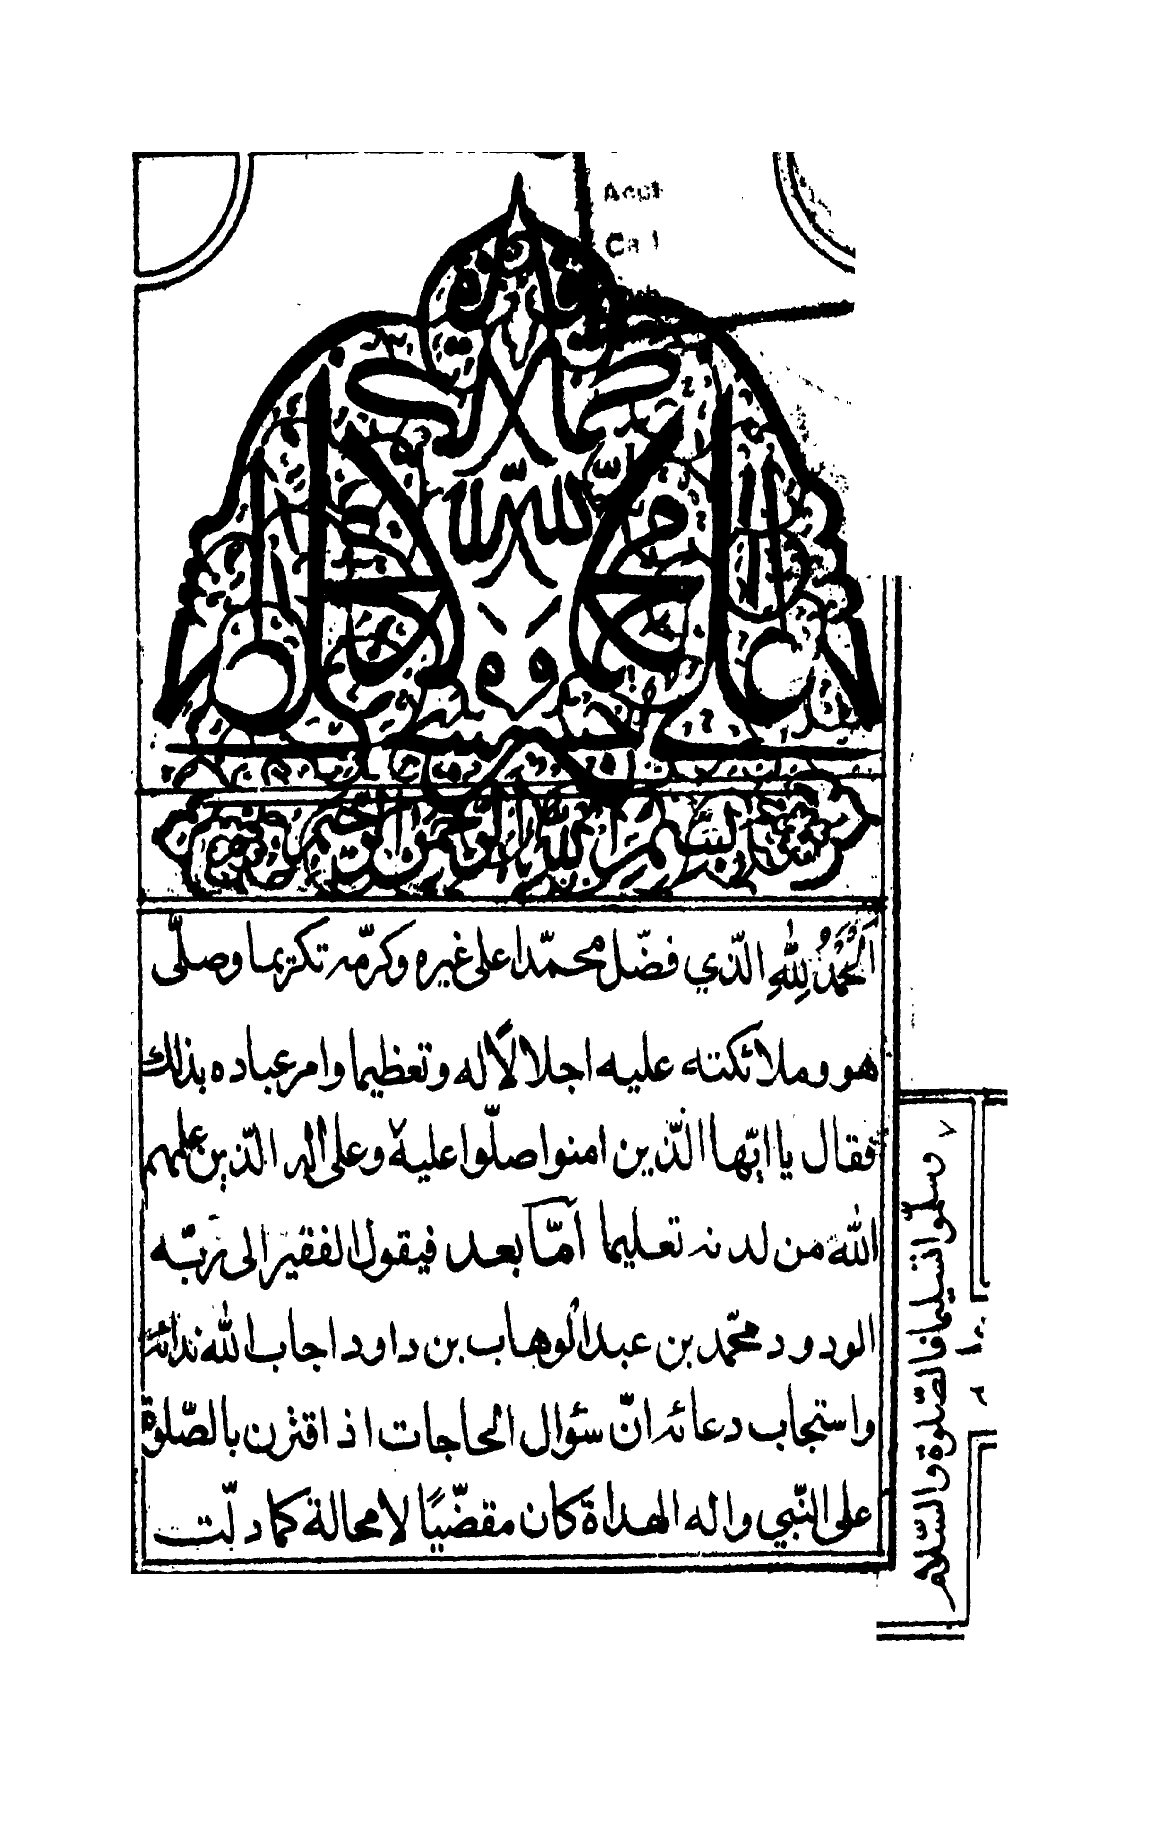 بسم الله الرحمن الرحيم
اَلْحَمْدُ لِلّٰهِ الّذي فضّل محمّدا على غيره وكرّمه تكريما وصلّى
هو وملائكته عليه اجلالاً له وتعظيما وامر عباده بذلك
فقال يا ايّها الّذين امنوا صلّوا عليه وعلى اله الّذين علمهم
الله من لدنه تعليما امّا بعد فيقول الفقير الى ربّه
الودود محمّد بن عبد الوهاب بن داود اجاب الله ندائه
واستجاب دعائه انّ سؤال الحاجات اذا اقترن بالصّلوة
على النّبي واله الهداة كان مقضّيًا لا محالة كما دلّت
وسلّموا تسليما فالصّلوة والسّلام